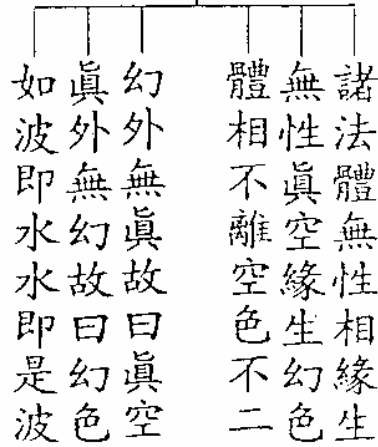 諸法體無性相緣生
無性眞空緣生幻色
體相不離空色不二
幻外無眞故曰眞空
眞外無幻故曰幻色
如波即水水即是波